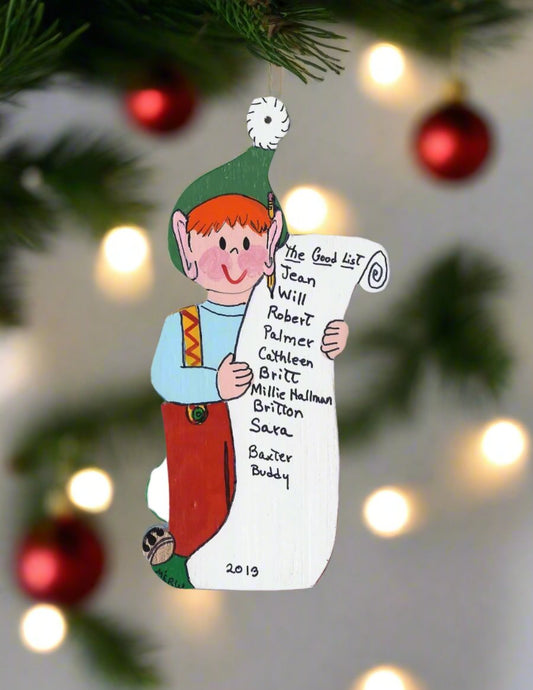 the Good List
Jean
Will
Robert
Palmer
Cathleen
Britt
Millie Hallman
Britton
Sara
Baxter
Buddy
2013